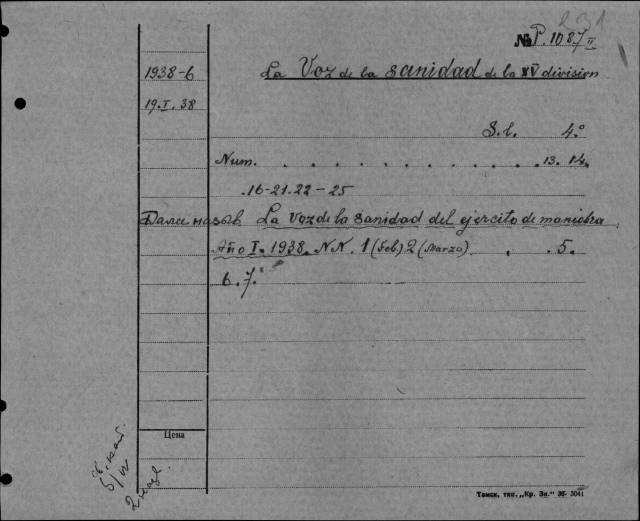 231
№ P. 1087 II
1938-6 La Voz de la sanidad de la XV division
19.I.38
S.l. 4º
Num. . . . . . . . . . . . 13. 14.
.16-21.22-25
Далее назыв. La Voz de la sanidad del ejercito de maniobra
Año I. 1938. NN. 1 (Feb.) 2 (Marzo) . . 5.
6. 7.
Цена
2 назв.
Томск, тип. „Кр. Зн." 3041